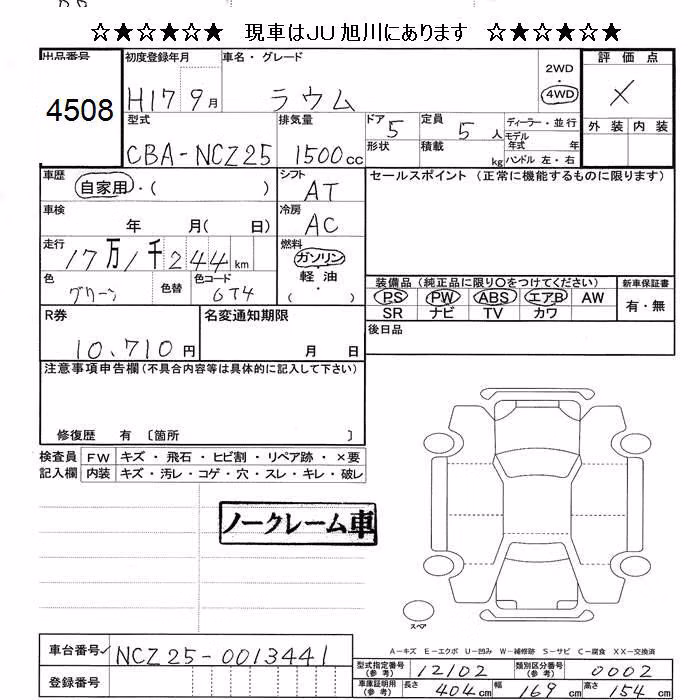 ☆★☆★☆★ 現車はJU旭川にあります ☆★☆★☆★
出品番号 初度登録年月 車名・グレード 2WD・4WD 評価点
4508 H17 9月 ラウム X
型式 排気量 ドア 定員 ディーラー・並行 外装 内装
CBA-NCZ25 1500cc 5 5人 モデル年式 年
形状 積載 kg ハンドル 左・右
車歴 自家用・( ) シフト AT セールスポイント (正常に機能するものに限ります)
車検 年 月( 日) 冷房 AC
走行 17万1千244km 燃料 ガソリン・軽油 ( )
色 グリーン 色替 色コード 6T4
装備品 (純正品に限り○をつけてください) 新車保証書
PS PW ABS エアB AW 有・無
SR ナビ TV カワ
R券 10,710円 名変通知期限 月 日 後日品
注意事項申告欄 (不具合内容等は具体的に記入して下さい)
修復歴 有 〔箇所 〕
検査員 FW キズ・飛石・ヒビ割・リペア跡・×要
記入欄 内装 キズ・汚レ・コゲ・穴・スレ・キレ・破レ
ノークレーム車
スペア
A-キズ E-エクボ U-凹み W-補修跡 S-サビ C-腐食 XX-交換済
車台番号 NCZ25-0013441
登録番号
型式指定番号(参考) 12102 類別区分番号(参考) 0002
車庫証明用(参考) 長さ 404cm 幅 169cm 高さ 154cm